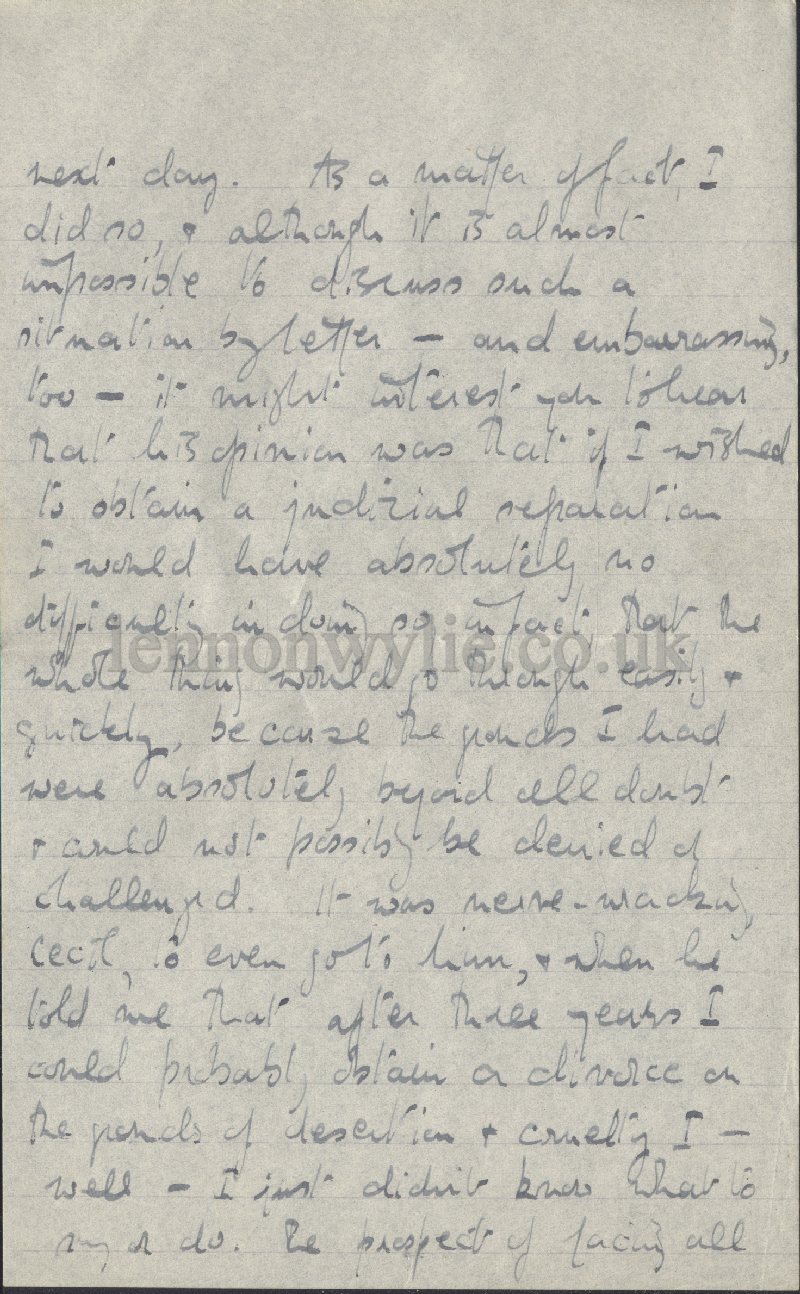 next day. As a matter of fact, I
did so, & although it is almost
impossible to discuss such a
situation by letter — and embarrassing,
too — it might interest you to hear
that his opinion was that if I wished
to obtain a judicial separation
I would have absolutely no
difficulty in doing so, in fact, that the
lennonwylie.co.uk
whole thing would go through easily &
quickly, because the grounds I had
were absolutely beyond all doubt
& could not possibly be denied or
challenged. It was nerve-wracking,
Cecil, to even go to him, & when he
told me that after three years I
could probably obtain a divorce on
the grounds of desertion & cruelty I —
well — I just didn't know what to
say or do. The prospect of facing all